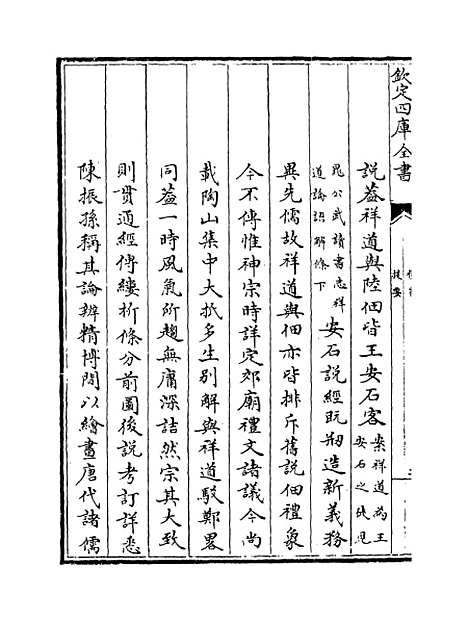 欽定四庫全書
提要
說蓋祥道與陸佃皆王安石客案祥道為王安石之徒見
晁公武讀書志祥道論語解條下安石說經既剏造新義務
異先儒故祥道與佃亦皆排斥舊說佃禮象
今不傳惟神宗時詳定郊廟禮文諸議今尚
載陶山集中大抵多生別解與祥道駁鄭畧
同蓋一時風氣所趨無庸深詰然宗其大致
則貫通經傳縷析條分前圖後說考訂詳悉
陳振孫稱其論辨精博間以繪畫唐代諸儒